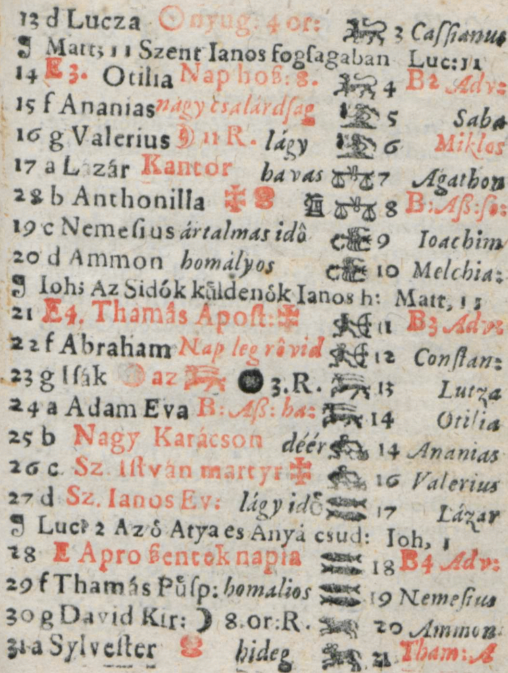 13 d Lucza nyug. 4 or: 3 Caſſianus
¶ Matt: 11 Szent Ianos fogſagaban Luc: 11
14 E3. Otilia Nap hoß: 8. 4 B2 Adv:
15 f Ananias nagy csalárdſag 5 Saba
16 g Valerius 11 R. lágy 6 Miklos
17 a Lázár Kantor havas 7 Agathon
28 b Anthonilla 8 B: Aß: ſo:
19 c Nemeſius ártalmas idô 9 Ioachim
20 d Ammon homályos 10 Melchia:
¶ Ioh: Az Sidók küldenók Ianos h: Matt, 11
21 E4. Thamás Apoſt: 11 B3 Adv:
22 f Abraham Nap leg rôvid 12 Conſtan:
23 g Iſák az 3. R. 13 Lutza
24 a Adam Eva B: Aß: ha: 14 Otilia
25 b Nagy Karácson déér 14 Ananias
26 c Sz. Iſtván martyr 16 Valerius
27 d Sz. Ianos Ev: lágy idô 17 Lázár
¶ Luc: 2 Az ô Atya es Anya csud: Ioh, 1
28 E Apro ßentek napia 18 B4 Adv:
29 f Thamás Pûſp: homalios 19 Nemeſius
30 g David Kir: 8. or: R. 20 Ammon:
31 a Sylveſter hideg 21 Tham: A